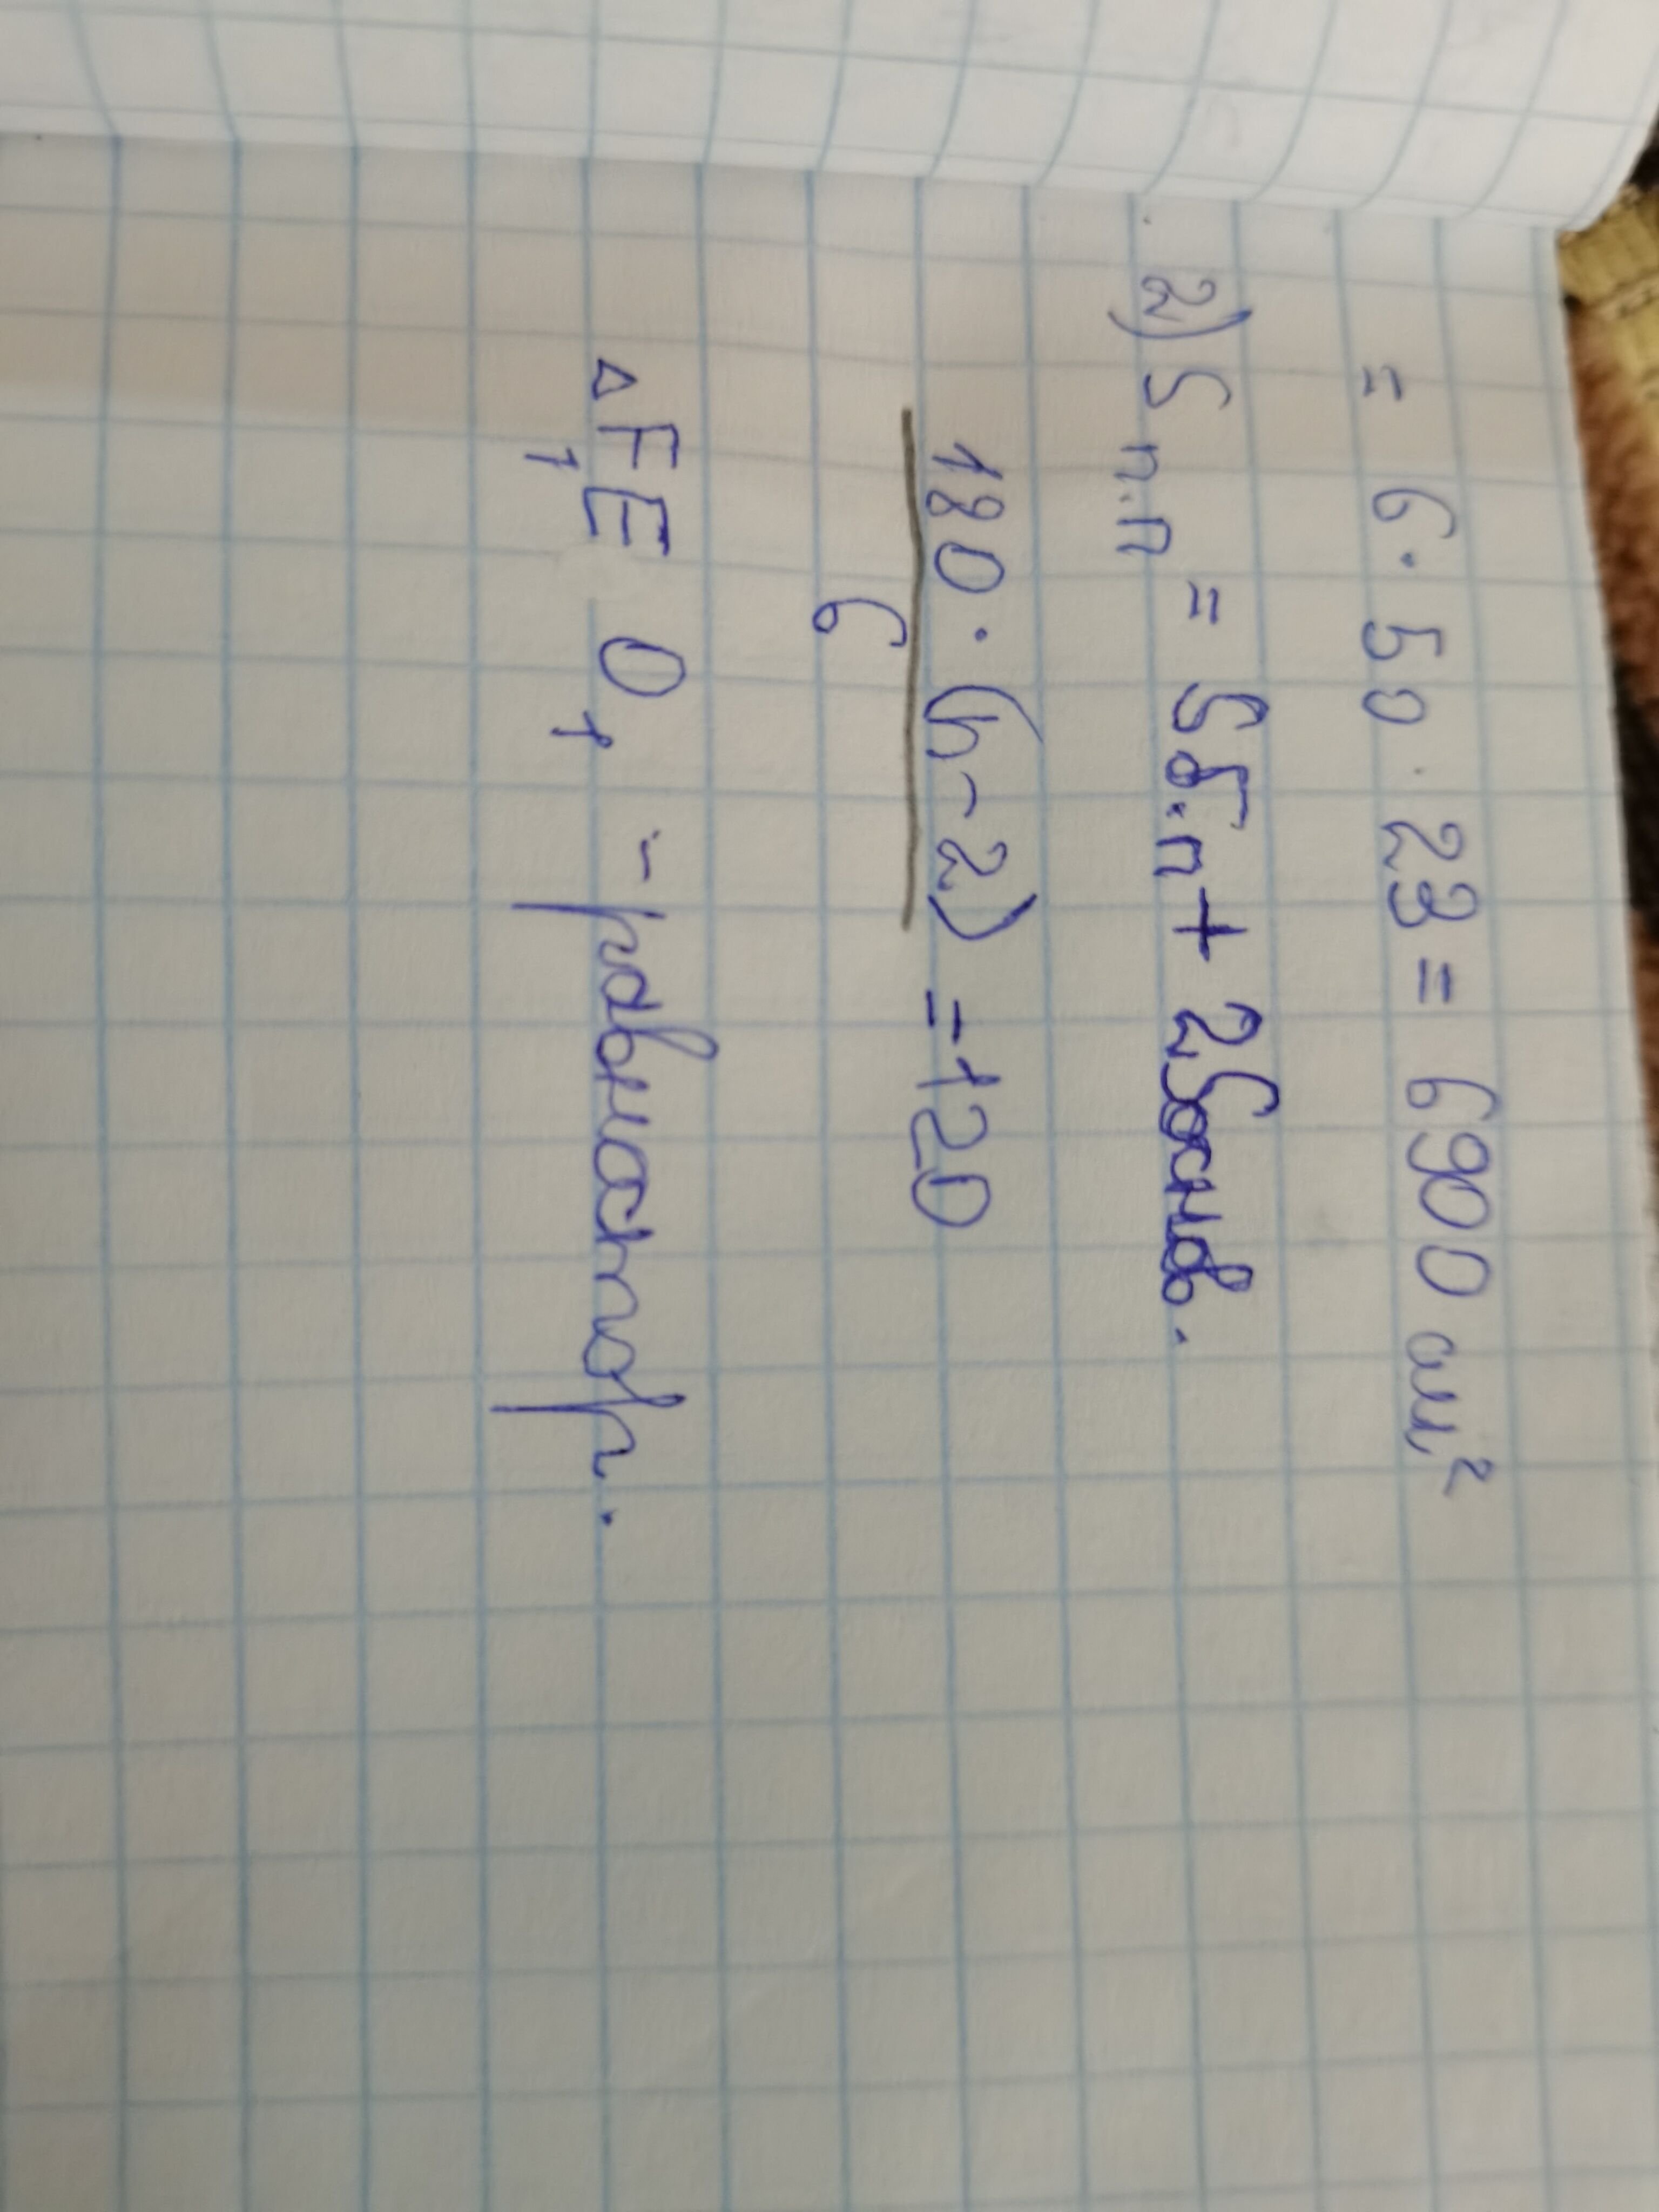 = 6 · 50 · 23 = 6900 см²
2) S п.п = S б.п + 2Sоснов.
180 · (n-2) = 120
6
△F₁E O₁ - равностор.